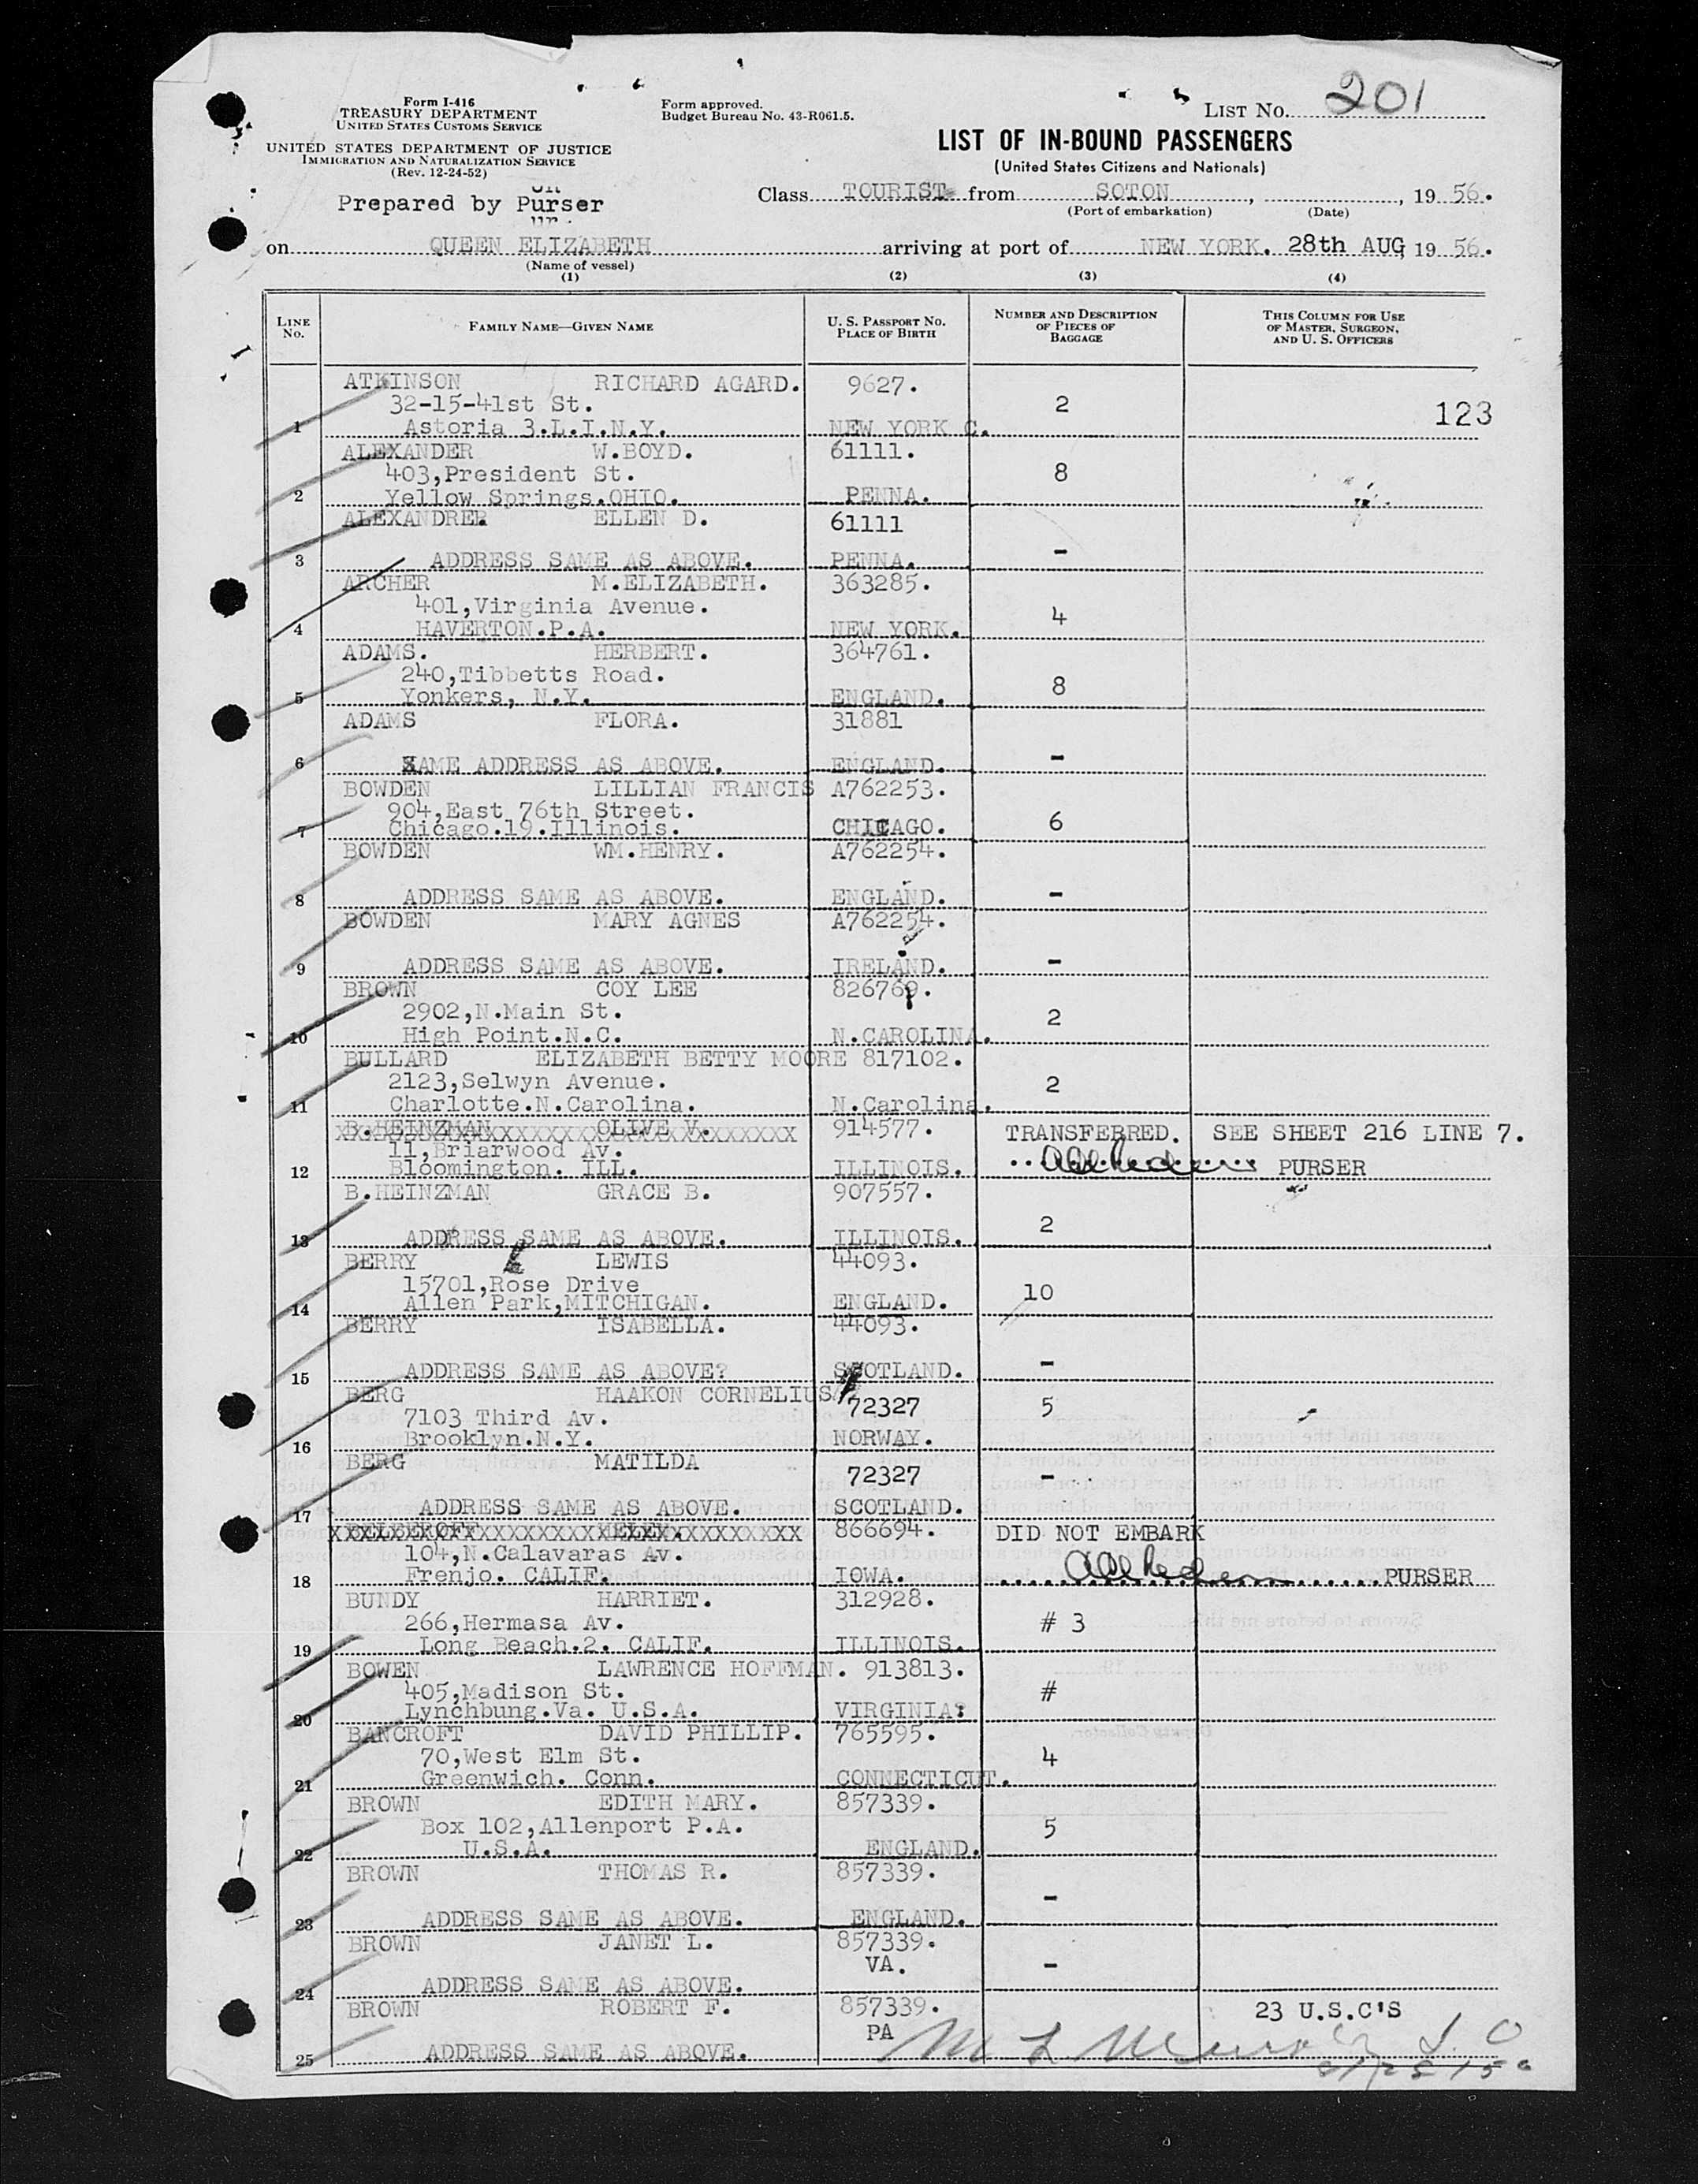 Form I-416
TREASURY DEPARTMENT
UNITED STATES CUSTOMS SERVICE
UNITED STATES DEPARTMENT OF JUSTICE
IMMIGRATION AND NATURALIZATION SERVICE
(Rev. 12-24-52)
Form approved.
Budget Bureau No. 43-R061.5.
LIST NO. 201
LIST OF IN-BOUND PASSENGERS
(United States Citizens and Nationals)
Prepared by Purser
Class TOURIST from SOTON , , 19 56.
(Port of embarkation) (Date)
on QUEEN ELIZABETH arriving at port of NEW YORK. 28th AUG, 19 56.
(Name of vessel)
(1) (2) (3) (4)
LINE NO. FAMILY NAME—GIVEN NAME U. S. PASSPORT NO. PLACE OF BIRTH NUMBER AND DESCRIPTION OF PIECES OF BAGGAGE THIS COLUMN FOR USE OF MASTER, SURGEON, AND U. S. OFFICERS
ATKINSON RICHARD AGARD. 9627.
32-15-41st St. 2 123
1 Astoria 3.L.I.N.Y. NEW YORK C.
ALEXANDER W.BOYD. 61111.
403,President St. 8
2 Yellow Springs.OHIO. PENNA.
ALEXANDRER ELLEN D. 61111
3 ADDRESS SAME AS ABOVE. PENNA. -
ARCHER M.ELIZABETH. 363285.
401,Virginia Avenue. 4
4 HAVERTON.P.A. NEW YORK.
ADAMS. HERBERT. 364761.
240,Tibbetts Road. 8
5 Yonkers, N.Y. ENGLAND.
ADAMS FLORA. 31881
6 SAME ADDRESS AS ABOVE. ENGLAND. -
BOWDEN LILLIAN FRANCIS A762253.
904,East 76th Street.
7 Chicago.19.Illinois. CHICAGO. 6
BOWDEN WM.HENRY. A762254.
8 ADDRESS SAME AS ABOVE. ENGLAND. -
BOWDEN MARY AGNES A762254.
9 ADDRESS SAME AS ABOVE. IRELAND. -
BROWN COY LEE 826769.
2902,N.Main St. 2
10 High Point.N.C. N.CAROLINA.
BULLARD ELIZABETH BETTY MOORE 817102.
2123,Selwyn Avenue. 2
11 Charlotte.N.Carolina. N.Carolina.
B.HEINZMAN OLIVE V. 914577. TRANSFERRED. SEE SHEET 216 LINE 7.
11,Briarwood Av.
12 Bloomington. ILL. ILLINOIS. PURSER
B.HEINZMAN GRACE B. 907557.
13 ADDRESS SAME AS ABOVE. ILLINOIS. 2
BERRY LEWIS 44093.
15701,Rose Drive 10
14 Allen Park,MITCHIGAN. ENGLAND.
BERRY ISABELLA. 44093.
15 ADDRESS SAME AS ABOVE? SCOTLAND. -
BERG HAAKON CORNELIUS 72327 5
7103 Third Av.
16 Brooklyn.N.Y. NORWAY.
BERG MATILDA 72327 -
17 ADDRESS SAME AS ABOVE. SCOTLAND.
866694. DID NOT EMBARK
104,N.Calavaras Av.
18 Frenjo. CALIF. IOWA. PURSER
BUNDY HARRIET. 312928.
266,Hermasa Av. # 3
19 Long Beach.2. CALIF. ILLINOIS.
BOWEN LAWRENCE HOFFMAN. 913813.
405,Madison St. #
20 Lynchbung.Va. U.S.A. VIRGINIA.
BANCROFT DAVID PHILLIP. 765595.
70,West Elm St. 4
21 Greenwich. Conn. CONNECTICUT.
BROWN EDITH MARY. 857339.
Box 102,Allenport P.A. 5
22 U.S.A. ENGLAND.
BROWN THOMAS R. 857339.
-
23 ADDRESS SAME AS ABOVE. ENGLAND.
BROWN JANET L. 857339.
VA. -
24 ADDRESS SAME AS ABOVE.
BROWN ROBERT F. 857339. 23 U.S.C'S
PA
25 ADDRESS SAME AS ABOVE.